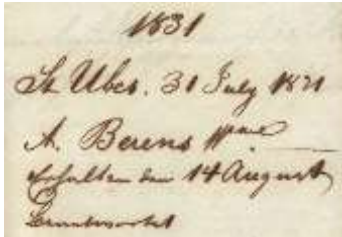 1831
St Ubes. 31 July 1831
A. Berens Wwe
Erhalten den 14 August
Beantwortet